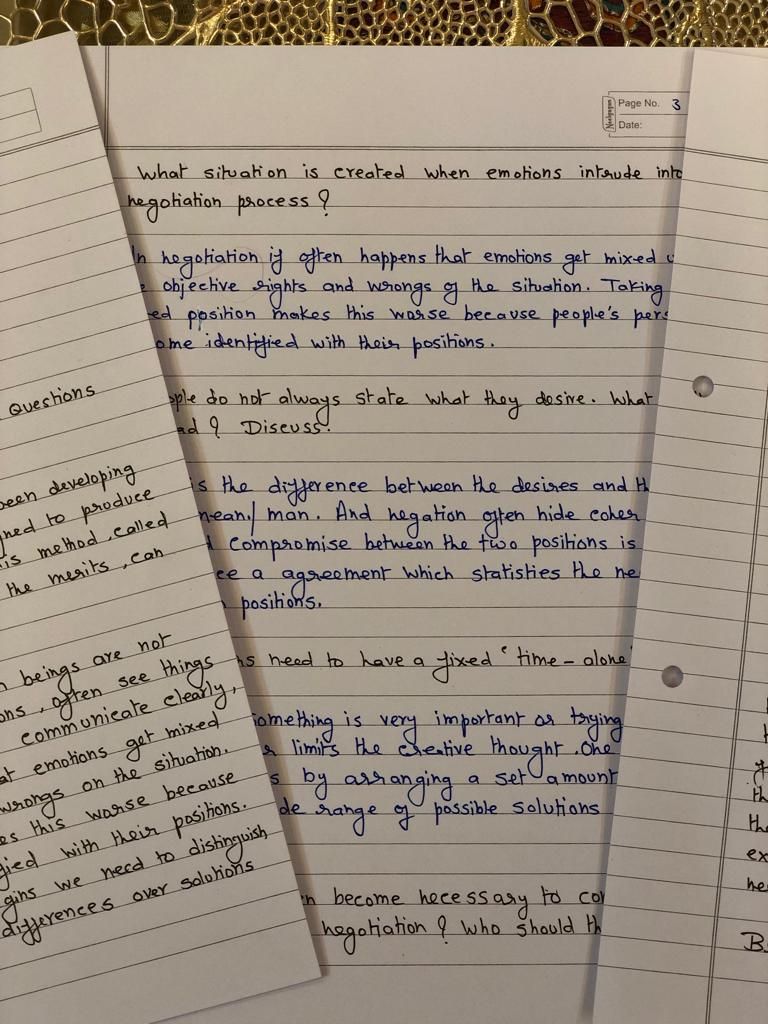 Page No. 3
Date:
What situation is created when emotions intrude into
negotiation process ?
In negotiation if often happens that emotions get mixed
objective rights and wrongs of the situation. Taking
position makes this worse because people's
identified with their positions.
do not always state what they desire. What
? Discuss.
is the difference between the desires and
mean/ man. And negation often hide
compromise between the two positions is
a agreement which statisties the
positions.
need to have a fixed 'time-alone'
something is very important or trying
limits the creative thought. One
by arranging a set amount
range of possible solutions
become necessary to
negotiation ? Who should
Questions
been developing
to produce
method, called
the merits, can
beings are not
often see things
communicate clearly,
emotions get mixed
wrongs on the situation.
this worse because
with their positions.
we need to distinguish
differences over solutions